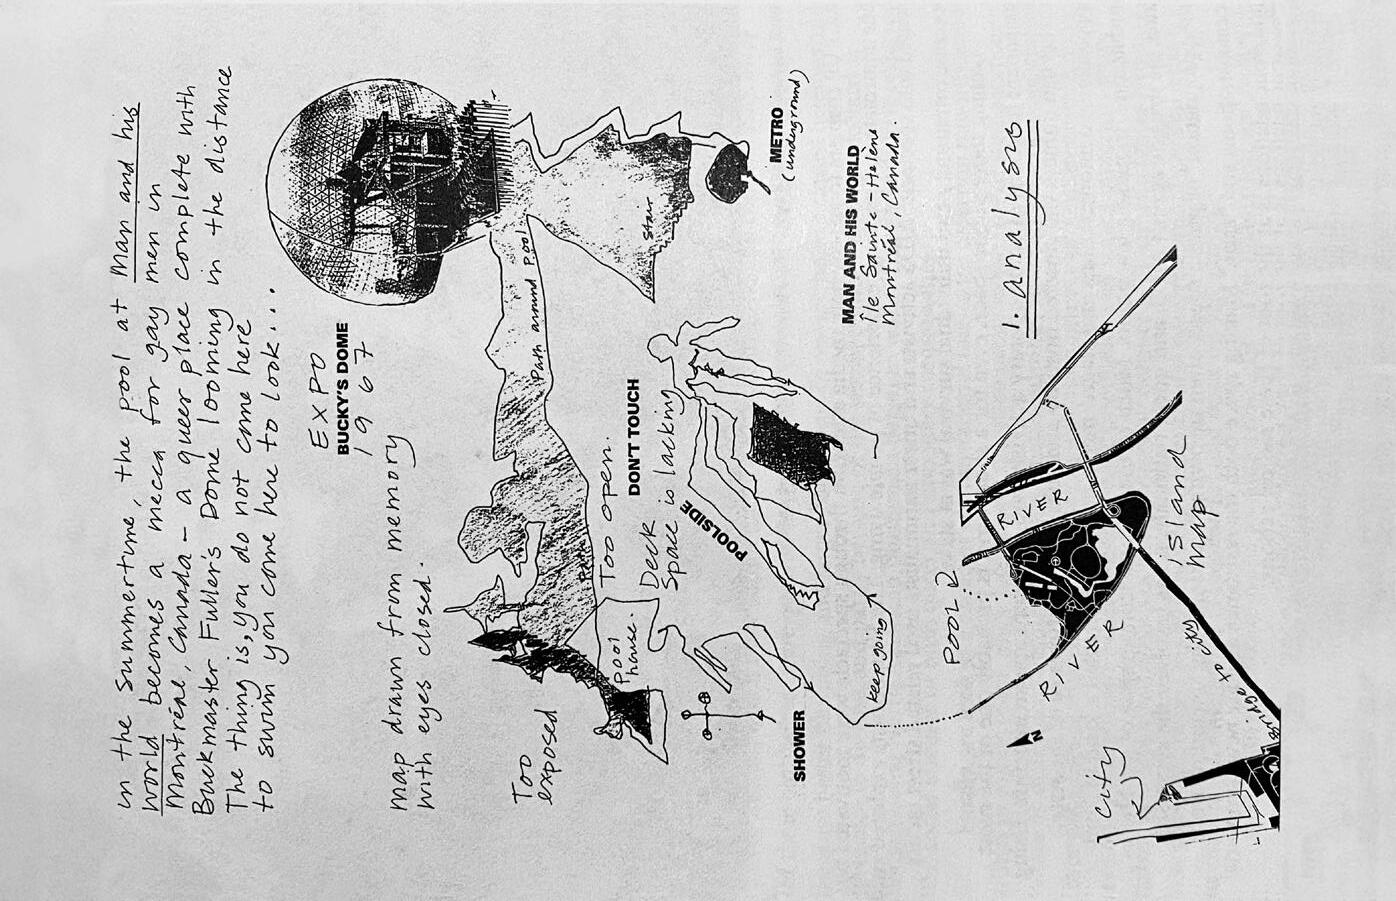 in the summertime, the pool at Man and his
world becomes a mecca for gay men in
Montréal, Canada – a queer place complete with
Buckmaster Fuller's Dome looming in the distance
The thing is, you do not come here
to swim you come here to look...
EXPO
BUCKY'S DOME
1967
map drawn from memory
with eyes closed.
Too
exposed
Path around pool
stair
METRO
(underground)
Too open.
DON'T TOUCH
Deck
Space is lacking
Pool
house.
POOLSIDE
SHOWER
keep going
MAN AND HIS WORLD
Île Sainte-Hélène
Montréal, Canada.
1. analysis
POOL
RIVER
RIVER
island
map
N
City
Bridge to city